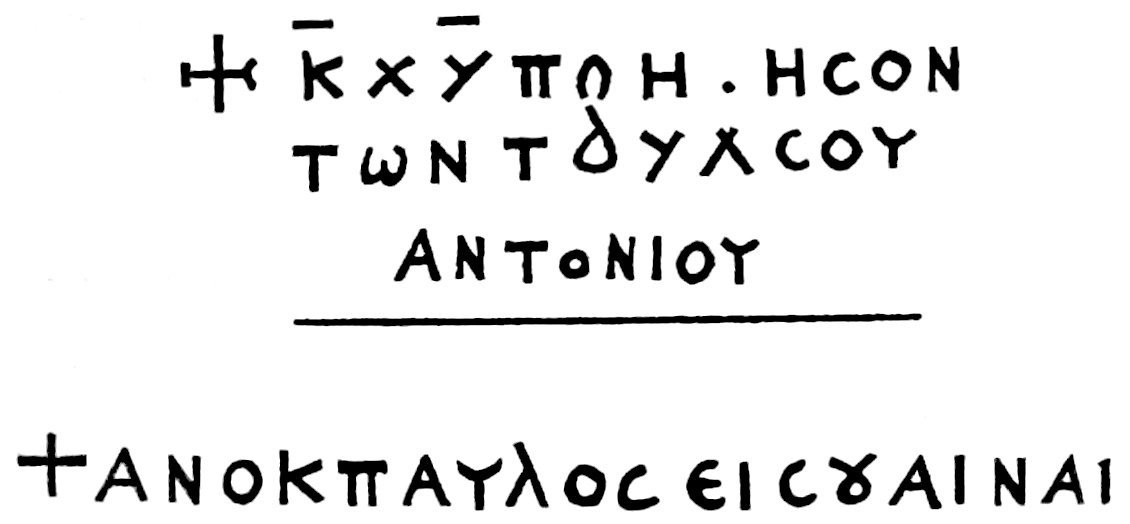 + Κ̅ Χ Υ̅ Π Ω Η . Η C Ο Ν
Τ ω Ν Τ δ Υ λ C Ο Υ
ΑΝΤΟΝΙΟΥ
+ΑΝΟΚΠΑΥλΟC ЄΙCȣΑΙΝΑΙ